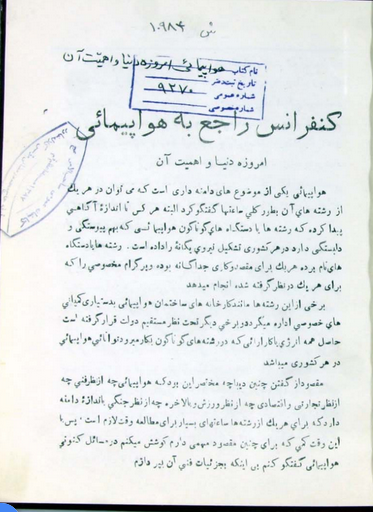 ش ۱۰۹۸۴
نام کتاب هواپیمائی امروزه دنیا و اهمیت آن
تاریخ ثبت دفتر
شماره عمومی ۹۲۷۰
شماره خصوصی
کنفرانس راجع به هواپیمائی
امروزه دنیا و اهمیت آن
هواپیمائی یکی از موضوع های دامنه داری است که می توان در هر یک
از رشته های آن بطور کلی ساعتها گفتگو کرد البته هر کس تا اندازهٔ آگاهی
پیدا کرده که رشته ها یا دستگاه های گوناگون هواپیمائی که بهم پیوستگی و
وابستگی دارد در هر کشوری تشکیل نیروی یگانهٔ را داده است . رشته ها یا دستگاه
های نام برده هر یک برای مقصود و کاری جداگانه بوده و پرگرام مخصوصی را که
برای هر یک در نظر گرفته شده انجام میدهد
برخی از این رشته ها مانند کارخانه های ساختمان هواپیمائی بدستیاری کمپانی
های خصوصی اداره میگردد و برخی دیگر تحت نظر مستقیم دولت قرار گرفته است
حاصل همه انرژی یا کارائی که در رشته های گوناگون بکار میرود توانائی هواپیمائی
در هر کشوری میباشد
مقصود از گفتن چنین دیباچه مختصر این بود که هواپیمائی چه از نظر فنی چه
از نظر تجارتی و اقتصادی چه از نظر ورزش و بالاخره چه از نظر جنگی باندازهٔ دامنه
دارد که برای هر یک از رشته ها ساعتهای بسیار برای مطالعه وقت لازم است ، پس با
این وقت کمی که برای چنین مقصود مهمی دارم کوشش میکنم در مسائل کنونی
هواپیمائی گفتگو کنم بی اینکه بجزئیات فنی آن بپردازم